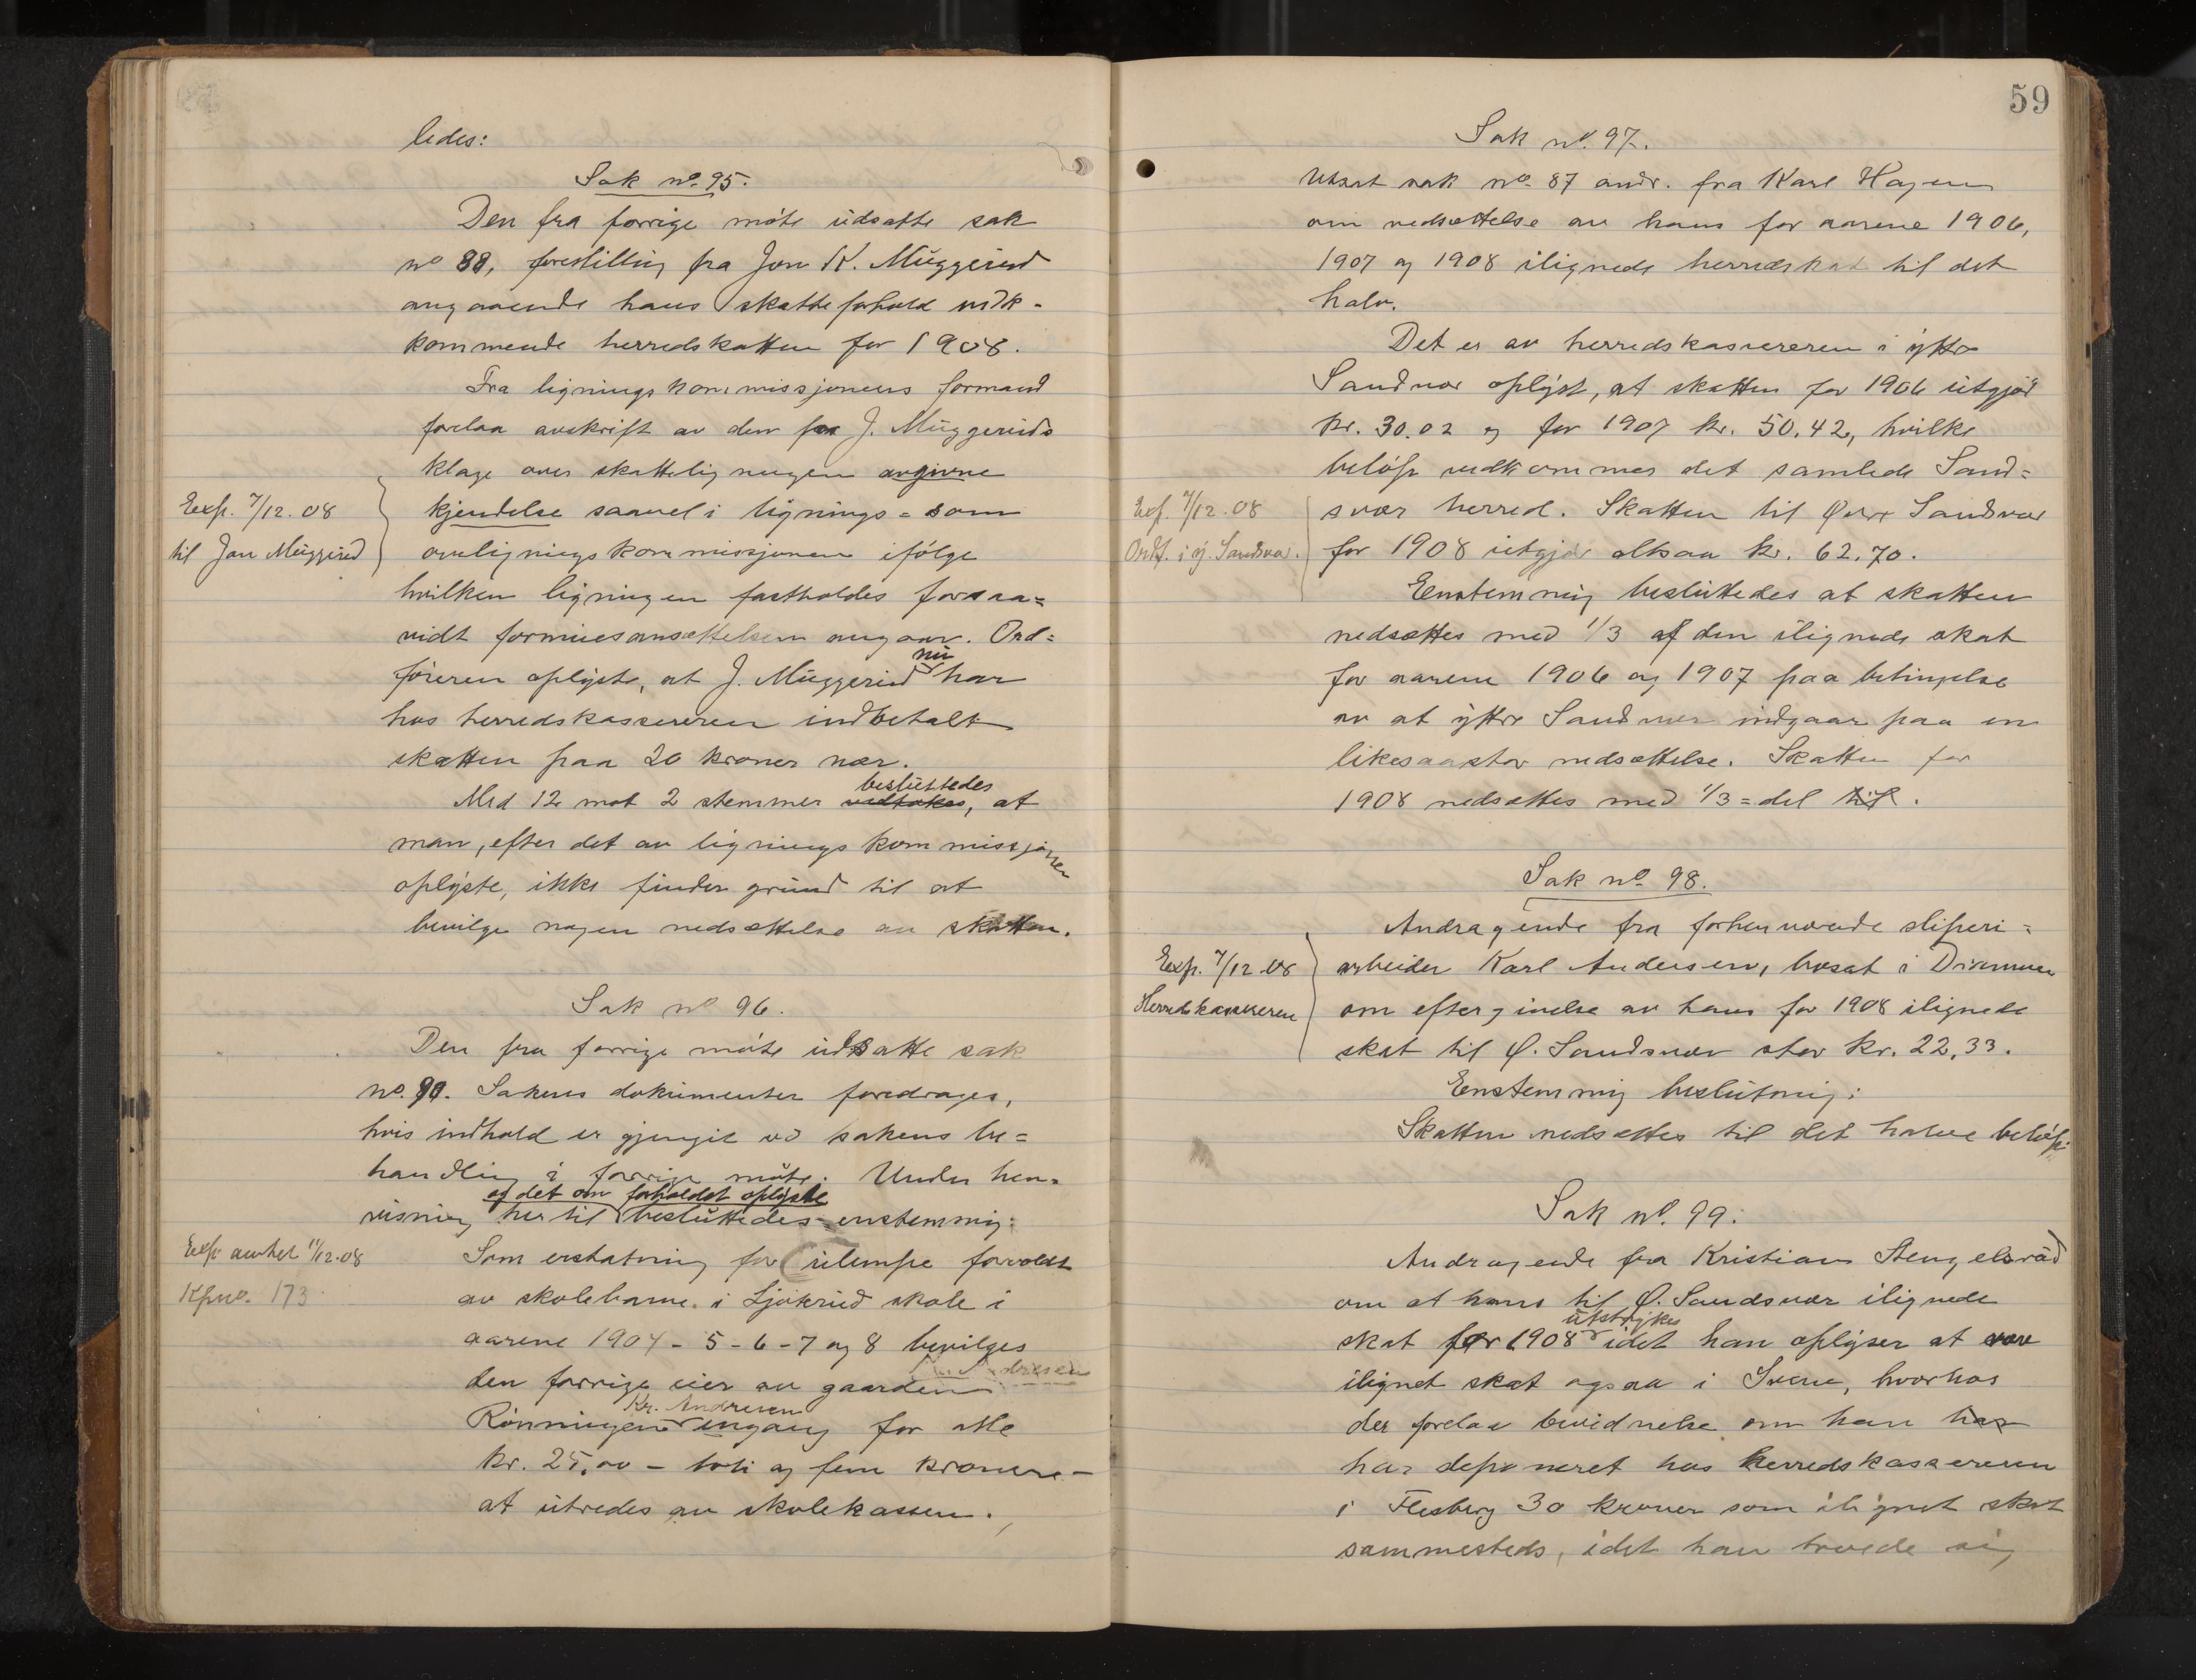 ledes:
Sak no. 95.
Den fra forrige møte udsatte sak
no 88, forestilling fra Jon K. Muggerud
angaaende hans skatteforhold vedk-
kommende herredskatten for 1908.
Fra ligningskommissjonens formand
forelaa avskrift av den paa J. Muggeruds
klage over skatteligningen avgivne
Exp. 7/12.08
kjendelse saavel i lignings= som
til Jon Muggerud
overligningskommissjonen ifølge
hvilken ligningen fastholdes forsaa=
vidt formuesansættelsen angaar. Ord=
føreren oplyste, at J. Muggerud nu har
hos herredskassereren indbetalt
skatten paa 20 kroner nær.
Med 12 mot 2 stemmer vedtokes besluttedes, at
man, efter det av ligningskommissjonen
oplyste, ikke finder grund til at
bevilge nogen nedsættelse av skatten.
Sak no 96.
Den fra forrige møte udsatte sak
no. 90. Sakens dokumenter foredrages,
hvis indhold er gjengit ved sakens be=
handling i forrige møte. Under hen=
og det om forholdet oplyste
visning hertil besluttedes enstemmig:
Exp. amtet 11/12.08
Som erstatning for ulempe forvoldt
Kpno. 173
av skolebarne i Ljøterud skole i
aarene 1904 - 5 - 6 - 7 og 8 bevilges
den forrige eier av gaarden
Kr. Andresen
Rønningen engang for alle
kr. 25,00 - toti og fem kroner -
at utredes av skolekassen.
59
Sak no. 97.
Utsat sak no. 87 andr. fra Karl Hagen
om nedsættelse av hans for aarene 1906,
1907 og 1908 ilignede herredskat til det
halv.
Det er av herredskassereren i ytre
Sandsvær oplyst, at skatten for 1906 utgjør
kr. 30.02 og for 1907 kr. 50.42, hvilke
beløp vedkommer det samlede Sand=
Exp. 7/12.08
svær herred. Skatten til Øvre Sandsvær
Ordf. i y. Sandsvær.
for 1908 utgjør altsaa kr. 62.70.
Enstemmig besluttedes at skatten
nedsættes med 1/3 af den ilignede skat
for aarene 1906 og 1907 paa betingelse
av at ytre Sandsvær indgaar paa en
likesaastor nedsættelse. Skatten for
1908 nedsættes med 1/3=del til.
Sak no. 98.
Andragende fra forhenværende sliperi=
Exp. 7/12.08
arbeider Karl Andersen, bosat i Drammen
Herredskassereren
om eftergivelse av hans for 1908 ilignede
skat til Ø. Sandsvær stor kr. 22,33.
Enstemmig beslutning:
Skatten nedsættes til det halve beløp.
Sak no. 99.
Andragende fra Kristian Stengelsrud
om at hans til Ø. Sandsvær ilignede
utstrykes
skat for 1908 idet han oplyser at være
ilignet skat ogsaa i Svene, hvorhos
der forelaa bevidnelse om han har
har deponeret hos herredskassereren
i Flesberg 30 kroner som ilignet skat
sammesteds, idet han troede sig